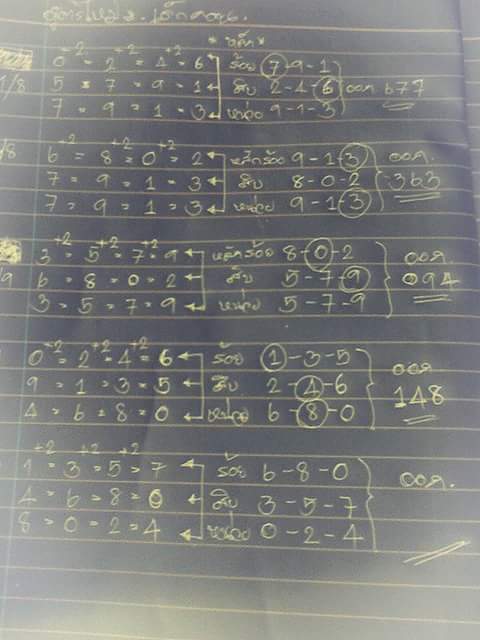 * หลัก *
+2 +2 +2
0 = 2 = 4 = 6 ร้อย 7-9-1
1/8 5 = 7 = 9 = 1 สิบ 2-4-6 ออก 677
7 = 9 = 1 = 3 หน่วย 9-1-3
+2 +2 +2
/8 6 = 8 = 0 = 2 หลักร้อย 9-1-3 ออก.
7 = 9 = 1 = 3 สิบ 8-0-2 363
7 = 9 = 1 = 3 หน่วย 9-1-3
+2 +2 +2
3 = 5 = 7 = 9 หลักร้อย 8-0-2 ออก
/9 6 = 8 = 0 = 2 สิบ 5-7-9 094
3 = 5 = 7 = 9 หน่วย 5-7-9
+2 +2 +2
0 = 2 = 4 = 6 ร้อย 1-3-5 ออก
9 = 1 = 3 = 5 สิบ 2-4-6 148
4 = 6 = 8 = 0 หน่วย 6-8-0
+2 +2 +2
1 = 3 = 5 = 7 ร้อย 6-8-0 ออก.
4 = 6 = 8 = 0 สิบ 3-5-7
8 = 0 = 2 = 4 หน่วย 0-2-4